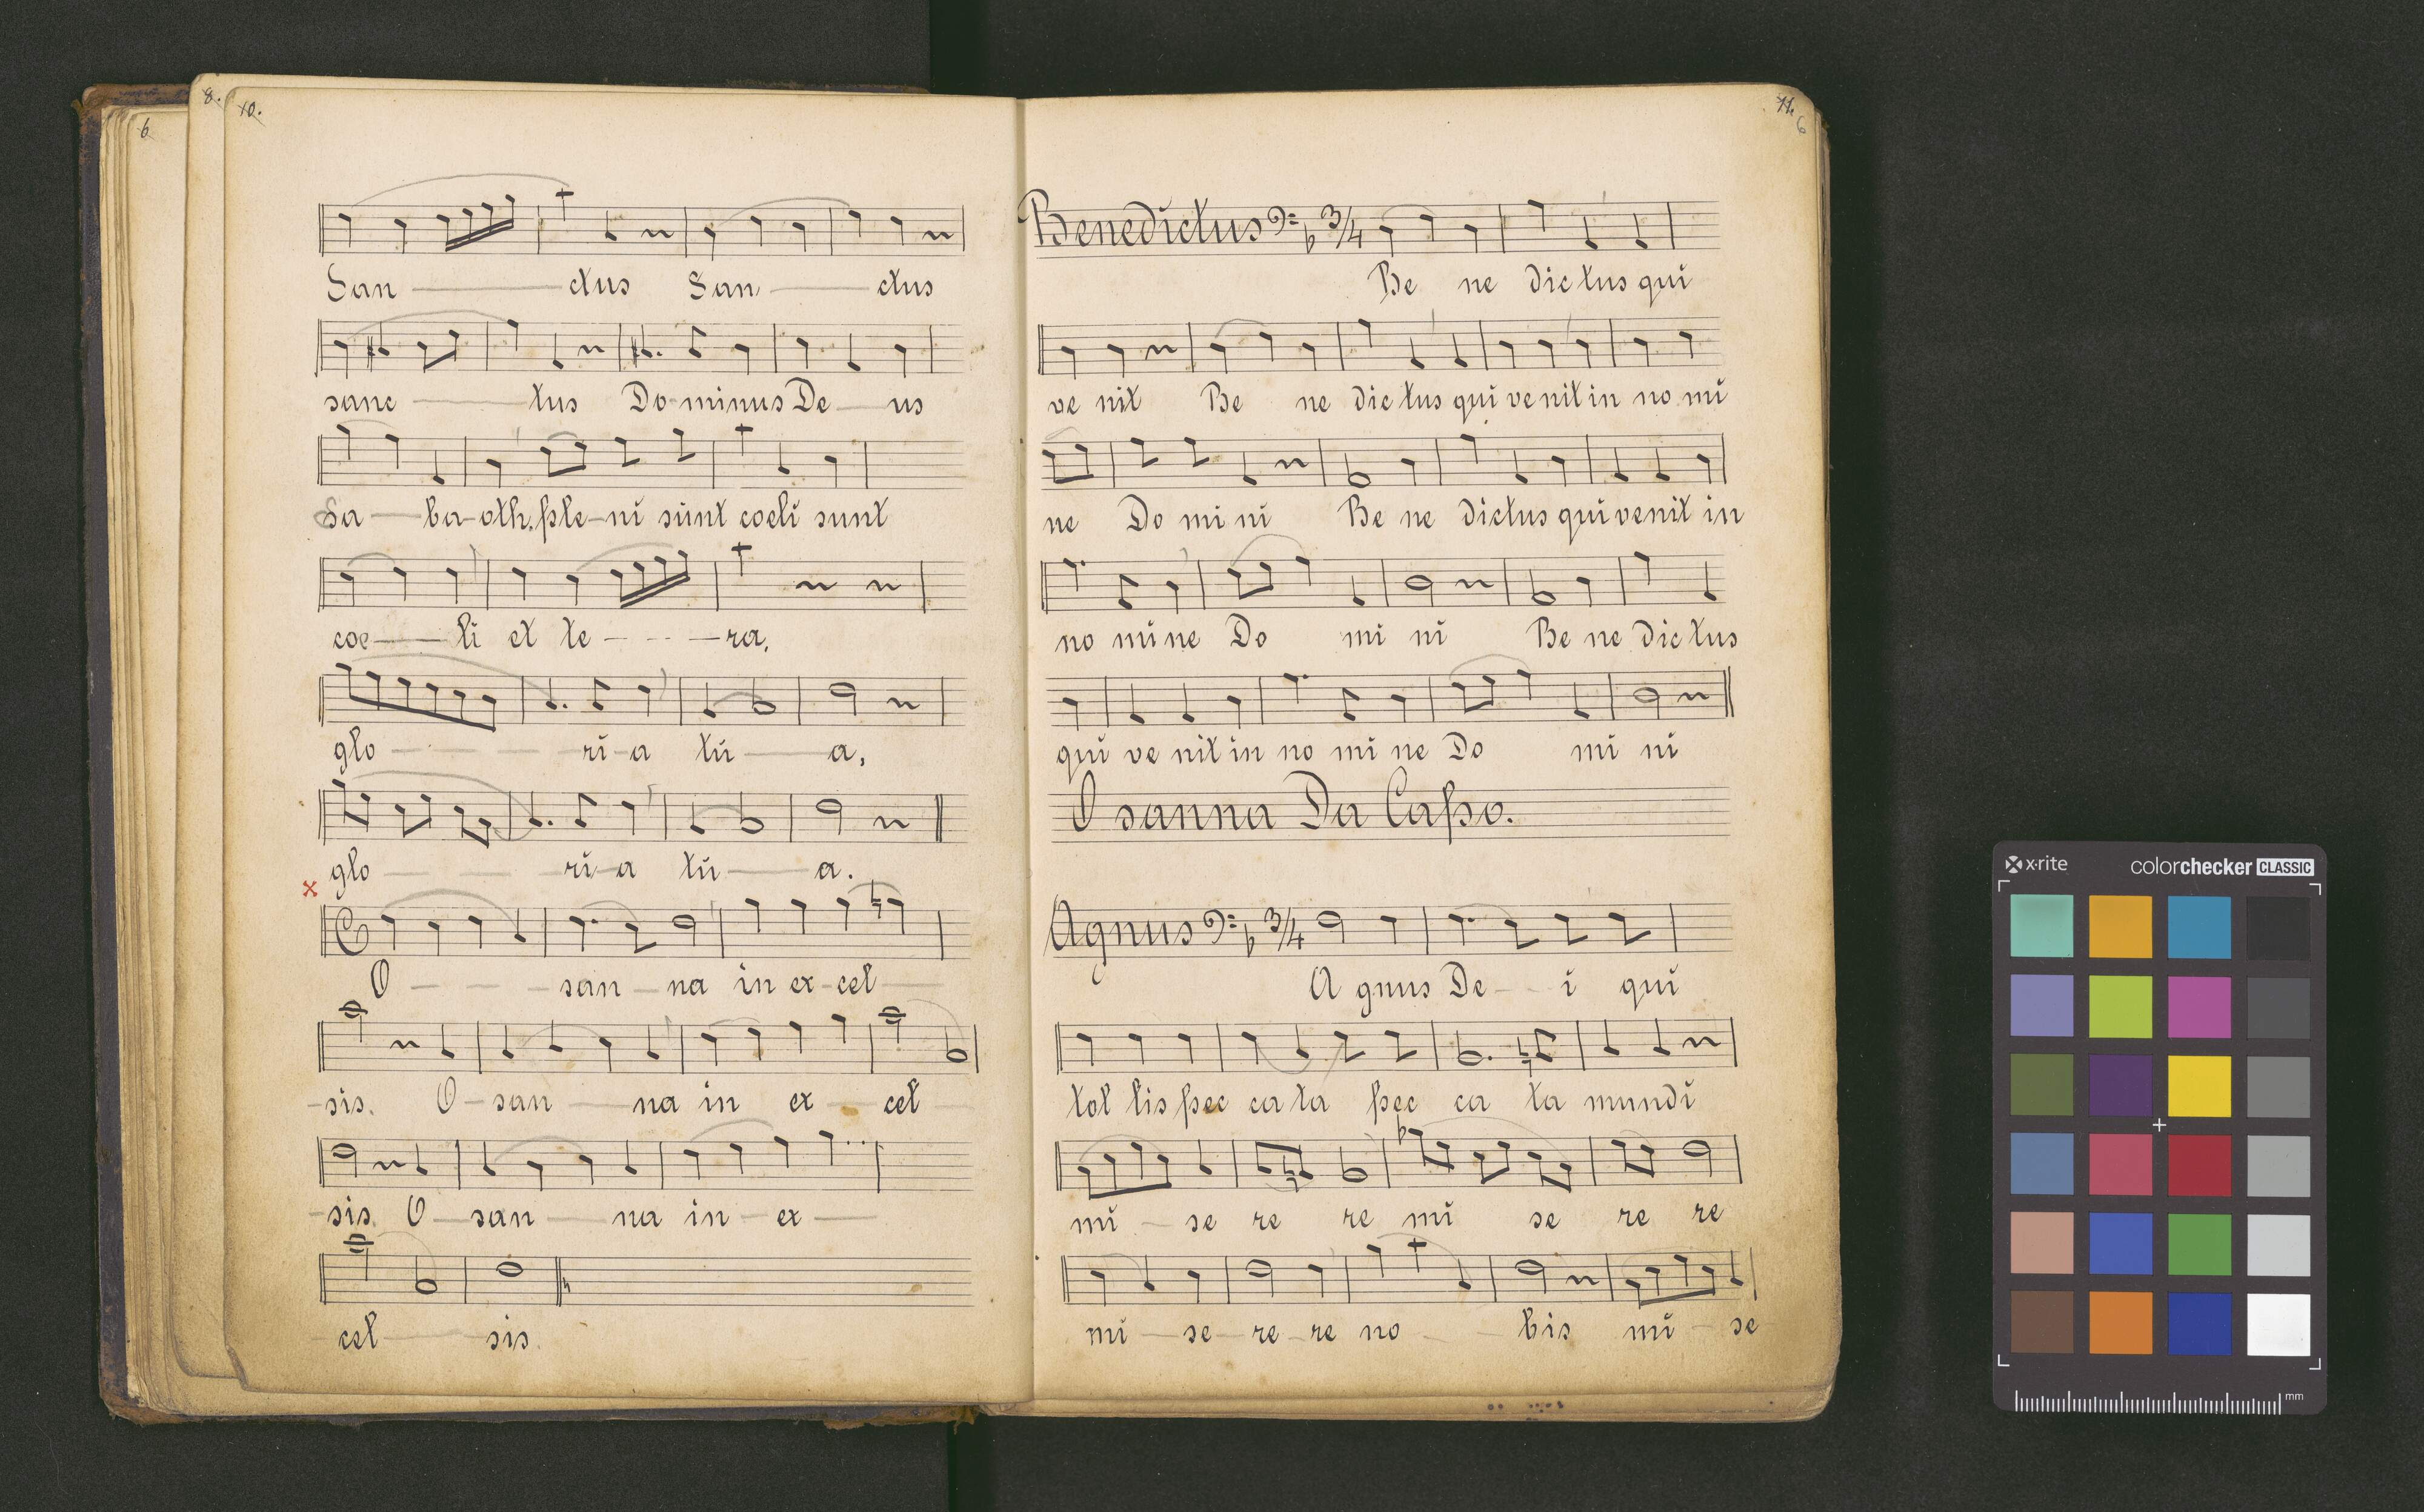 6
8.
10.
San ctus San ctus
sanc tus Do-minus De us
Sa ba-oth, ple-ni sunt coeli sunt
coe li et te - - - ra.
glo ri-a tu a,
glo ri-a tu a.
x
O - - - san - na in ex-cel
-sis. O-san na in ex cel
-sis O-san na in ex
cel sis.
11.
6
Benedictus 3/4
Be ne dic tus qui
ve nit Be ne dic tus qui ve nit in no mi
ne Do mi ni Be ne dictus qui venit in
no mi ne Do mi ni Be ne dic tus
qui ve nit in no mi ne Do mi ni
O sanna Da Capo.
Agnus 3/4
A gnus De - - i qui
tol lis pec ca ta pec ca ta mundi
mi - se re re mi se re re
mi - se - re - re no - - bis mi - se
x-rite
colorchecker CLASSIC
mm